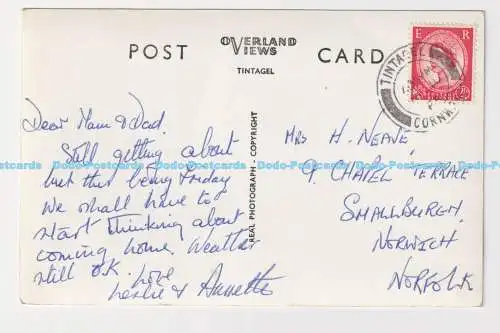 POST
OVERLAND
VIEWS
TINTAGEL
CARD
E R
TINTAGEL
CORNWALL
Dear Mam & Dad.
Still getting about
but this being Friday
we shall have to
start thinking about
coming home. Weather
still O.K. Love
Leslie & Annette
REAL PHOTOGRAPH - COPYRIGHT
MRS H. NEAVE,
9. CHAPEL TERRACE
SMALLBURGH,
NORWICH
NORFOLK
Dodo-Postcards Dodo-Postcards Dodo-Postcards Dodo-Postcards